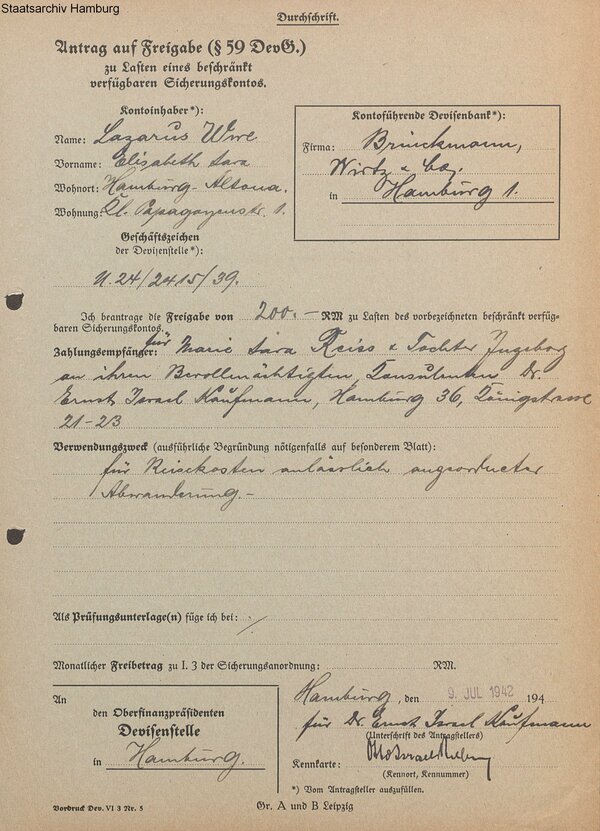 Staatsarchiv Hamburg
Durchschrift.
Antrag auf Freigabe (§ 59 DevG.)
zu Lasten eines beschränkt
verfügbaren Sicherungskontos.
Kontoinhaber*):
Name: Lazarus Wwe
Vorname: Elisabeth Sara
Wohnort: Hamburg-Altona.
Wohnung: Kl. Papagoyenstr. 1.
Kontoführende Devisenbank*):
Firma: Brinckmann,
Wirtz & Co,
in Hamburg 1.
Geschäftszeichen
der Devisenstelle*):
U.24/2415/39.
Ich beantrage die Freigabe von 200.- RM zu Lasten des vorbezeichneten beschränkt verfüg-
baren Sicherungskontos.
Zahlungsempfänger: für Marie Sara Reiss & Tochter Ingeborg
an ihren Bevollmächtigten, Konsulenten Dr.
Ernst Israel Kaufmann, Hamburg 36, Königstrasse
21-23
Verwendungszweck (ausführliche Begründung nötigenfalls auf besonderem Blatt):
für Reisekosten anlässlich angeordneter
Abwanderung.-
Als Prüfungsunterlage(n) füge ich bei: /
Monatlicher Freibetrag zu I. 3 der Sicherungsanordnung: RM.
An
den Oberfinanzpräsidenten
Devisenstelle
in Hamburg.
Hamburg, den 9. JUL 1942 194
für Dr. Ernst Israel Kaufmann
(Unterschrift des Antragstellers)
Otto Israel
Kennkarte:
(Kennort, Kennummer)
*) Vom Antragsteller auszufüllen.
Vordruck Dev. VI 3 Nr. 5
Gr. A und B Leipzig